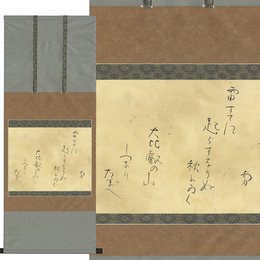 雷すてに
起らすなりぬ
秋ふかく
大比叡の山
しつまり
たまへ